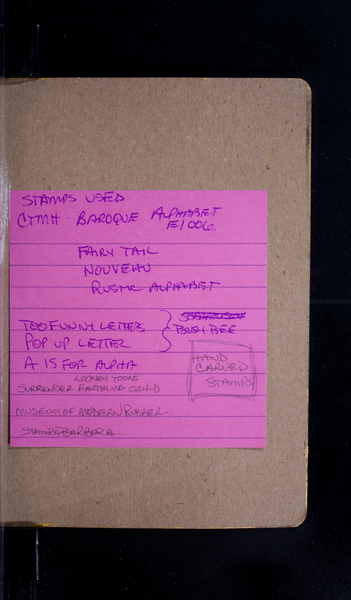 STAMPS USED
CTMH - BAROQUE ALPHABET
E1006
FAIRY TAIL
NOUVEAU
RUSTIC ALPHABET
TOO FUNNY LETTERS
POP UP LETTER
BUSY BEE
A IS FOR ALPHA
HAND
CARVED
STAMPS
LOONEY TOONS
SURRENDER EARTHLING 024-D
MUSEUM OF MODERN RUBBER
BARBARA